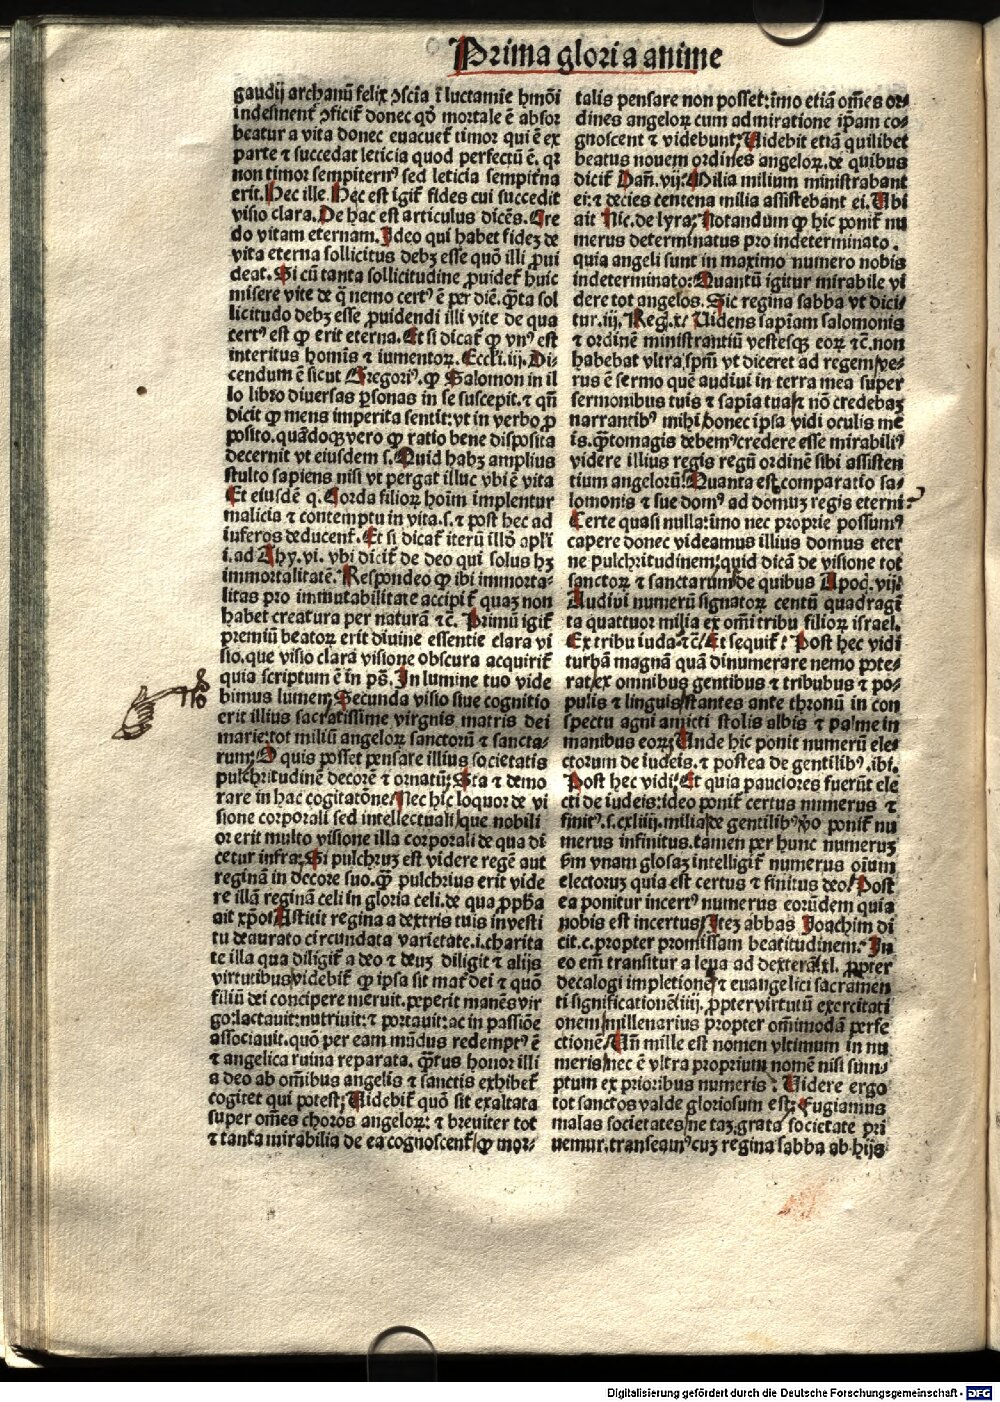 Prima gloria anime
gaudij archanū felix ↄscīa ī luctamīe hmōi
indesinent̄ ↄficit̄ donec qd̓ mortale ē absor
beatur a vita donec euacuet̄ timor qui ē ex
parte ⁊ succedat leticia quod perfectū ē. qꝛ
non timor sempiternꝰ sed leticia sempit̓na
erit. Hec ille. Hec est igit̄ fides cui succedit
visio clara. De hac est articulus dicēs. Cre
do vitam eternam. Ideo qui habet fidez de
vita eterna sollicitus debꝫ esse quō illi ꝓui
deat. Si cū tanta sollicitudine ꝓuidet̄ huic
misere vite de q̄ nemo certꝰ ē per diē. q̄ta sol
licitudo debꝫ esse ꝓuidendi illi vite de qua
certꝰ est ꝙ erit eterna. Et si dicat̄ ꝙ vnꝰ est
interitus homīs ⁊ iumentoꝝ. Eccl̓i. iij. Di
cendum ē sicut Gregoriꝰ. ꝙ Salomon in il
lo libro diuersas ꝑsonas in se suscepit. ⁊ qn̄
dicit ꝙ mens imperita sentit: vt in verbo ꝓ
posito. quādoqꝫ vero ꝙ ratio bene disposita
decernit vt eiusdem s. Quid habꝫ amplius
stulto sapiens nisi vt pergat illuc vbi ē vita
Et eiusdē q. Corda filioꝝ hoīm implentur
malicia ⁊ contemptu in vita. s. ⁊ post hec ad
inferos deducent̄. Et si dicat̄ iterū illd̓ apl̓i
i. ad Thy. vi. vbi dicit̄ de deo qui solus hꝫ
immortalitatē. Respondeo ꝙ ibi immorta-
litas pro immutabilitate accipit̄ quaꝫ non
habet creatura per naturā ⁊c̄. Primū igit̄
premiū beatoꝝ erit diuine essentie clara vi
sio. que visio clara visione obscura acquirit̄
quia scriptum ē in ps̄. In lumine tuo vide
bimus lumen; Secunda visio siue cognitio
erit illius sacratissime virgnis matris dei
marie: tot miliū angeloꝝ sanctorū ⁊ sancta-
rum; O quis posset pensare illius societatis
pulchritudinē decorē ⁊ ornatū; Sta ⁊ demo
rare in hac cogitatōne/ Nec hic loquor de vi
sione corporali sed intellectuali/ que nobili
or erit multo visione illa corporali de qua di
cetur infra; Si pulchruꝫ est videre regē aut
reginā in decore suo. q̄ꝫ pulchrius erit vide
re illā reginā celi in gloria celi. de qua ꝓpha
ait xp̄o. Astitit regina a dextris tuis in vesti
tu deaurato circundata varietate. i. charita
te illa qua diligit̄ a deo ⁊ deuꝫ diligit ⁊ alijs
virtutibus/ videbit̄ ꝙ ipsa sit mat̓ dei ⁊ quō
filiū dei concipere meruit. peperit manēs vir
go: lactauit: nutriuit: ⁊ portauit: ac in passiōe
associauit. quō per eam mūdus redemptꝰ ē
⁊ angelica ruina reparata. q̄tus honor illi
a deo ab om̄ibus angelis ⁊ sanctis exhibet̄
cogitet qui potest; Videbit̄ quō sit exaltata
super om̄es choros angeloꝝ: ⁊ breuiter tot
⁊ tanta mirabilia de ea cognoscent̄/ ꝙ mor-
talis pensare non posset: imo etiā om̄es or-
dines angeloꝝ cum admiratione ip̄am co-
gnoscent ⁊ videbunt; Videbit etiā quilibet
beatus nouem ordines angeloꝝ. de quibus
dicit̄ Dan̄. vij. Milia milium ministrabant
ei: ⁊ decies centena milia assistebant ei. Vbi
ait Nic. de lyra; Notandum ꝙ hic ponit̄ nu
merus determinatus pro indeterminato.
quia angeli sunt in maximo numero nobis
indeterminato; Quantū igitur mirabile vi
dere tot angelos. Sic regina sabba vt dici-
tur. iij. Reg̓. x/ Uidens sapīam salomonis
⁊ ordinē ministrantiū vestesqꝫ eoꝝ ⁊c̄. non
habebat vltra spm̄ vt diceret ad regem/ ve-
rus ē sermo quē audiui in terra mea super
sermonibus tuis ⁊ sapīa tua/ ⁊ nō credebaꝫ
narrantibꝰ mihi/ donec ipsa vidi oculis me
is. q̄tomagis debemꝰ credere esse mirabiliꝰ
videre illius regis regū ordinē sibi assisten
tium angelorū! Quanta est comparatio sa-
lomonis ⁊ sue domꝰ ad domuꝫ regis eterni
Certe quasi nulla: imo nec proprie possumꝰ
capere donec videamus illius domus eter
ne pulchritudinem; quid dicā de visione tot
sanctoꝝ ⁊ sanctarum/ de quibus Apoc̓. vij.
Audiui numerū signatoꝝ centū quadragīn
ta quattuor milia ex om̄i tribu filioꝝ israel.
Ex tribu iuda ⁊c̄/ Et sequit̄! Post hec vidi
turbā magnā quā dinumerare nemo pote-
rat/ ex omnibus gentibus ⁊ tribubus ⁊ po-
pulis ⁊ linguis/ stantes ante thronū in con
spectu agni amicti stolis albis ⁊ palme in
manibus eoꝝ; Unde hic ponit numerū ele-
ctorum de iudeis. ⁊ postea de gentilibꝰ. ibi.
Post hec vidi/ Et quia pauciores fuerūt ele
cti de iudeis: ideo ponit̄ certus numerus ⁊
finitꝰ. s. cxliiij. milia/ de gentilibꝰ v̓o ponit̄ nu
merus infinitus. tamen per hunc numeruꝫ
scḋm vnam glosaꝫ intelligit̄ numerus oīum
electoruꝫ quia est certus ⁊ finitus deo/ Post
ea ponitur incertꝰ numerus eorūdem quia
nobis est incertus/ Itēꝫ abbas Joachim di
cit. c. propter promissam beatitudinem. In
eo em̄ transitur a leua ad dexterā/ xl. ꝓpter
decalogi impletionē ⁊ euangelici sacramen
ti significationē/ iiij. ꝓpter virtutū exercitati
onem/ millenarius propter om̄imodā perfe
ctionē/ Un̄ mille est nomen vltimum in nu
meris/ nec ē vltra propriuꝫ nomē nisi sum-
ptum ex prioribus numeris: Videre ergo
tot sanctos valde gloriosum est; Fugiamus
malas societates/ ne taꝫ grata societate pri
uemur. transeamꝰ cuꝫ regina sabba ab hijs